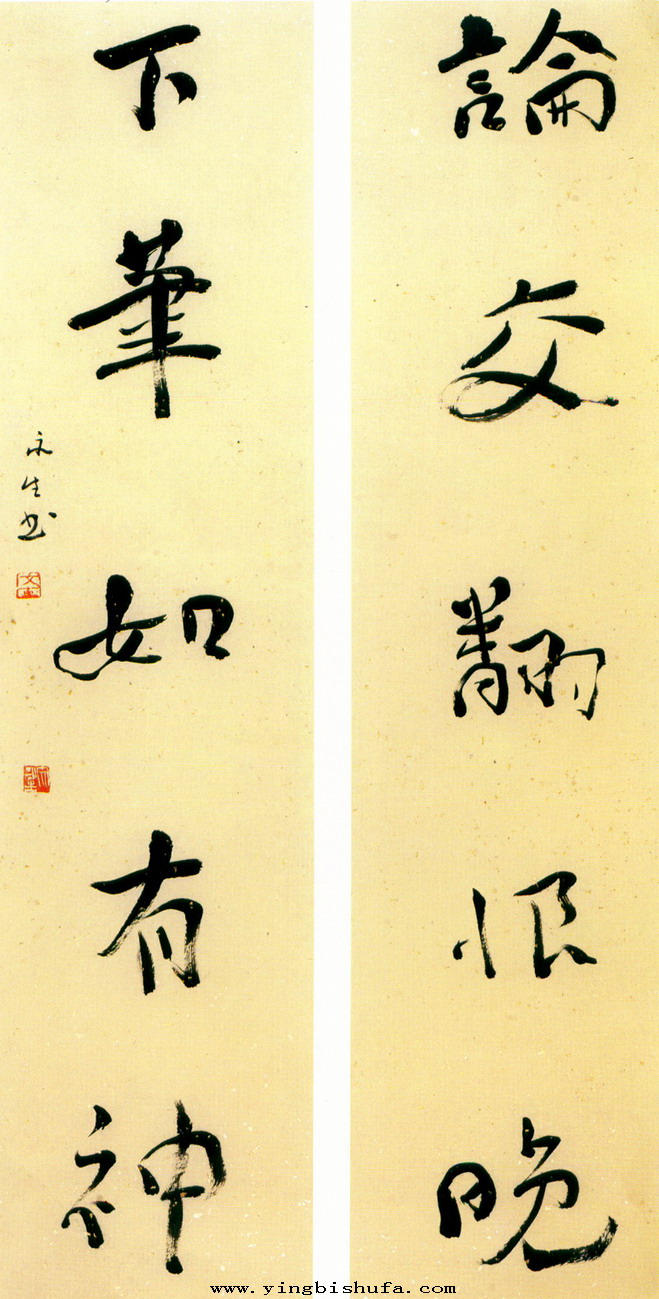 論交翻恨晚
下筆如有神
永生书
www.yingbishufa.com